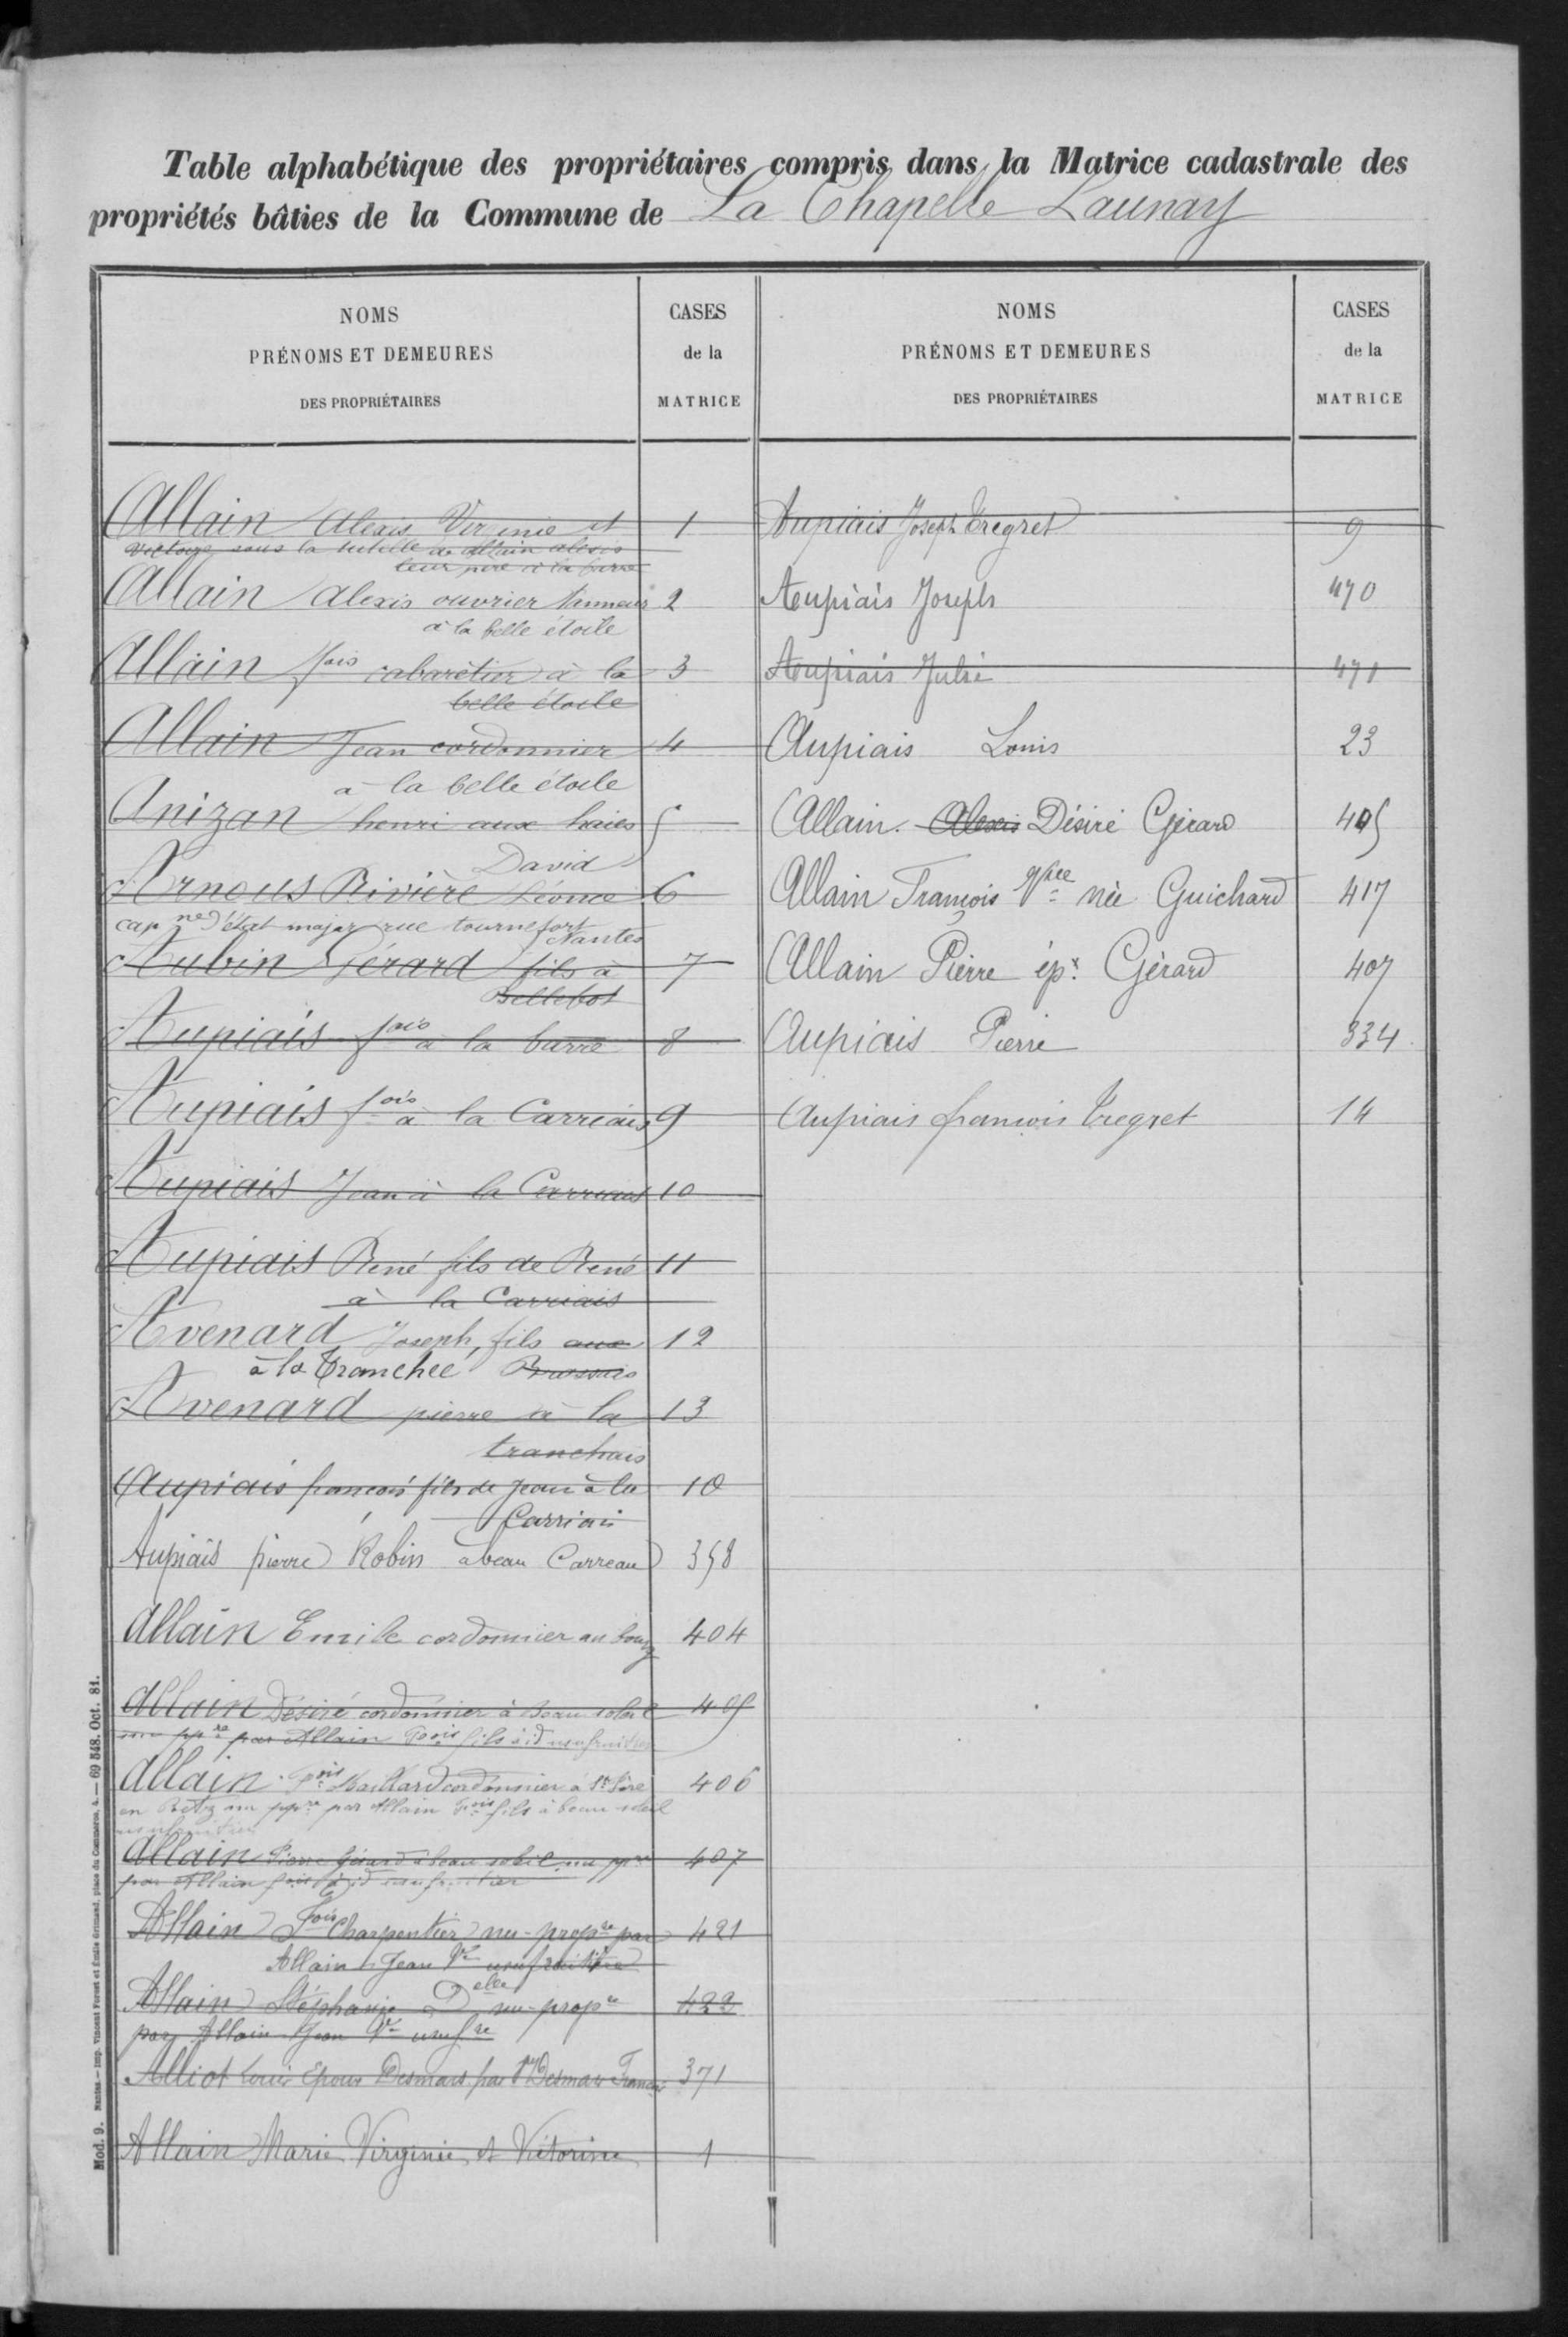 Table alphabétique des propriétaires compris dans la Matrice cadastrale des
propriétés bâties de la Commune de La Chapelle Launay
NOMS
PRÉNOMS ET DEMEURES
DES PROPRIÉTAIRES
CASES
de la
MATRICE
Allain Alexis Virginie et 1
victoire sous la tutelle de allain alexis
leur père à la barre
Allain alexis ouvrier 2
à la belle étoile
Allain fois cabaretier à la 3
belle étoile
Allain Jean cordonnier 4
à la belle étoile
Anizan henri aux haies 5
David
Arnous Rivière Léonce 6
capne d'état major rue tournefort
Nantes
Aubin Gérard fils à 7
Bellebot
Aupiais fois à la barre 8
Aupiais fois à la Carriais 9
Aupiais Jean à la Carriais 10
Aupiais René fils de René 11
à la Carriais
Avenard Joseph, fils aux 12
à la Tranchée
Avenard pierre à la 13
tranchais
Aupiais francois fils de jean à la 10
Carriais
Aupiais pierre Robin à beau Carreau 358
Allain Emile cordonnier au bourg 404
Allain Désiré cordonnier à beau soleil 405
nu ppre par Allain Fois fils à id usufruitier
Allain Fois Maillard cordonnier à St Père 406
en Retz nu ppre par Allain Fois fils à beau soleil
usufruitier
Allain Pierre Gérard à beau soleil nu ppre 407
par Allain fois à id usufruitier
Allain Fois Charpentier nu-propre par 421
Allain Jean Ve usufruitière
Allain Stéphanie Delle nu-propre 422
par Allain Jean Ve usufre
Alliot Louis Epoux Desmars par Desmars François 371
Allain Marie Virginie et Victorine 1
NOMS
PRÉNOMS ET DEMEURES
DES PROPRIÉTAIRES
CASES
de la
MATRICE
Aupiais Joseph Tregret 9
Aupiais Joseph 470
Aupiais Julie 471
Aupiais Louis 23
Allain Alexis Désiré Gérard 405
Allain François Vve née Guichard 417
Allain Pierre épx Gérard 407
Aupiais Pierre 334
Aupiais françois Tregret 14
Mod. 9. Nantes — Imp. Vincent Forest et Émile Grimaud, place du Commerce, 4. — 69 548. Oct. 81.